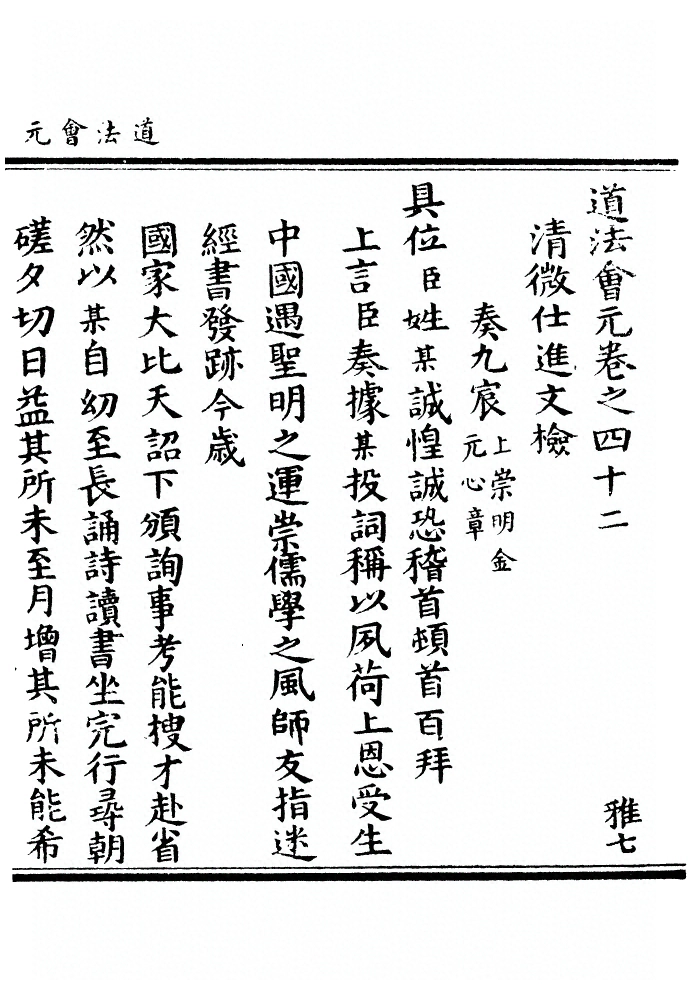 道法會元
道法會元卷之四十二
雅七
清微仕進文檢
奏九宸
上崇明金
元心章
具位臣姓某誠惶誠恐稽首頓首百拜
上言臣奏據某投詞稱以夙荷上恩受生
中國遇聖明之運崇儒學之風師友指迷
經書發跡今歲
國家大比天詔下頒詢事考能搜才赴省
然以某自幼至長誦詩讀書坐完行尋朝
磋夕切日益其所未至月增其所未能希